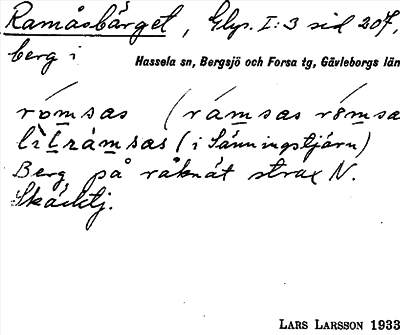 Ramåsbärget, Glp. I:3 sid 207,
berg i
Hassela sn, Bergsjö och Forsa tg, Gävleborgs län
rómsas (rámsas rómsa
lìtrámsas (i Sänningstjärn)
Berg på råknåt strax N.
Skácktj.
LARS LARSSON 1933